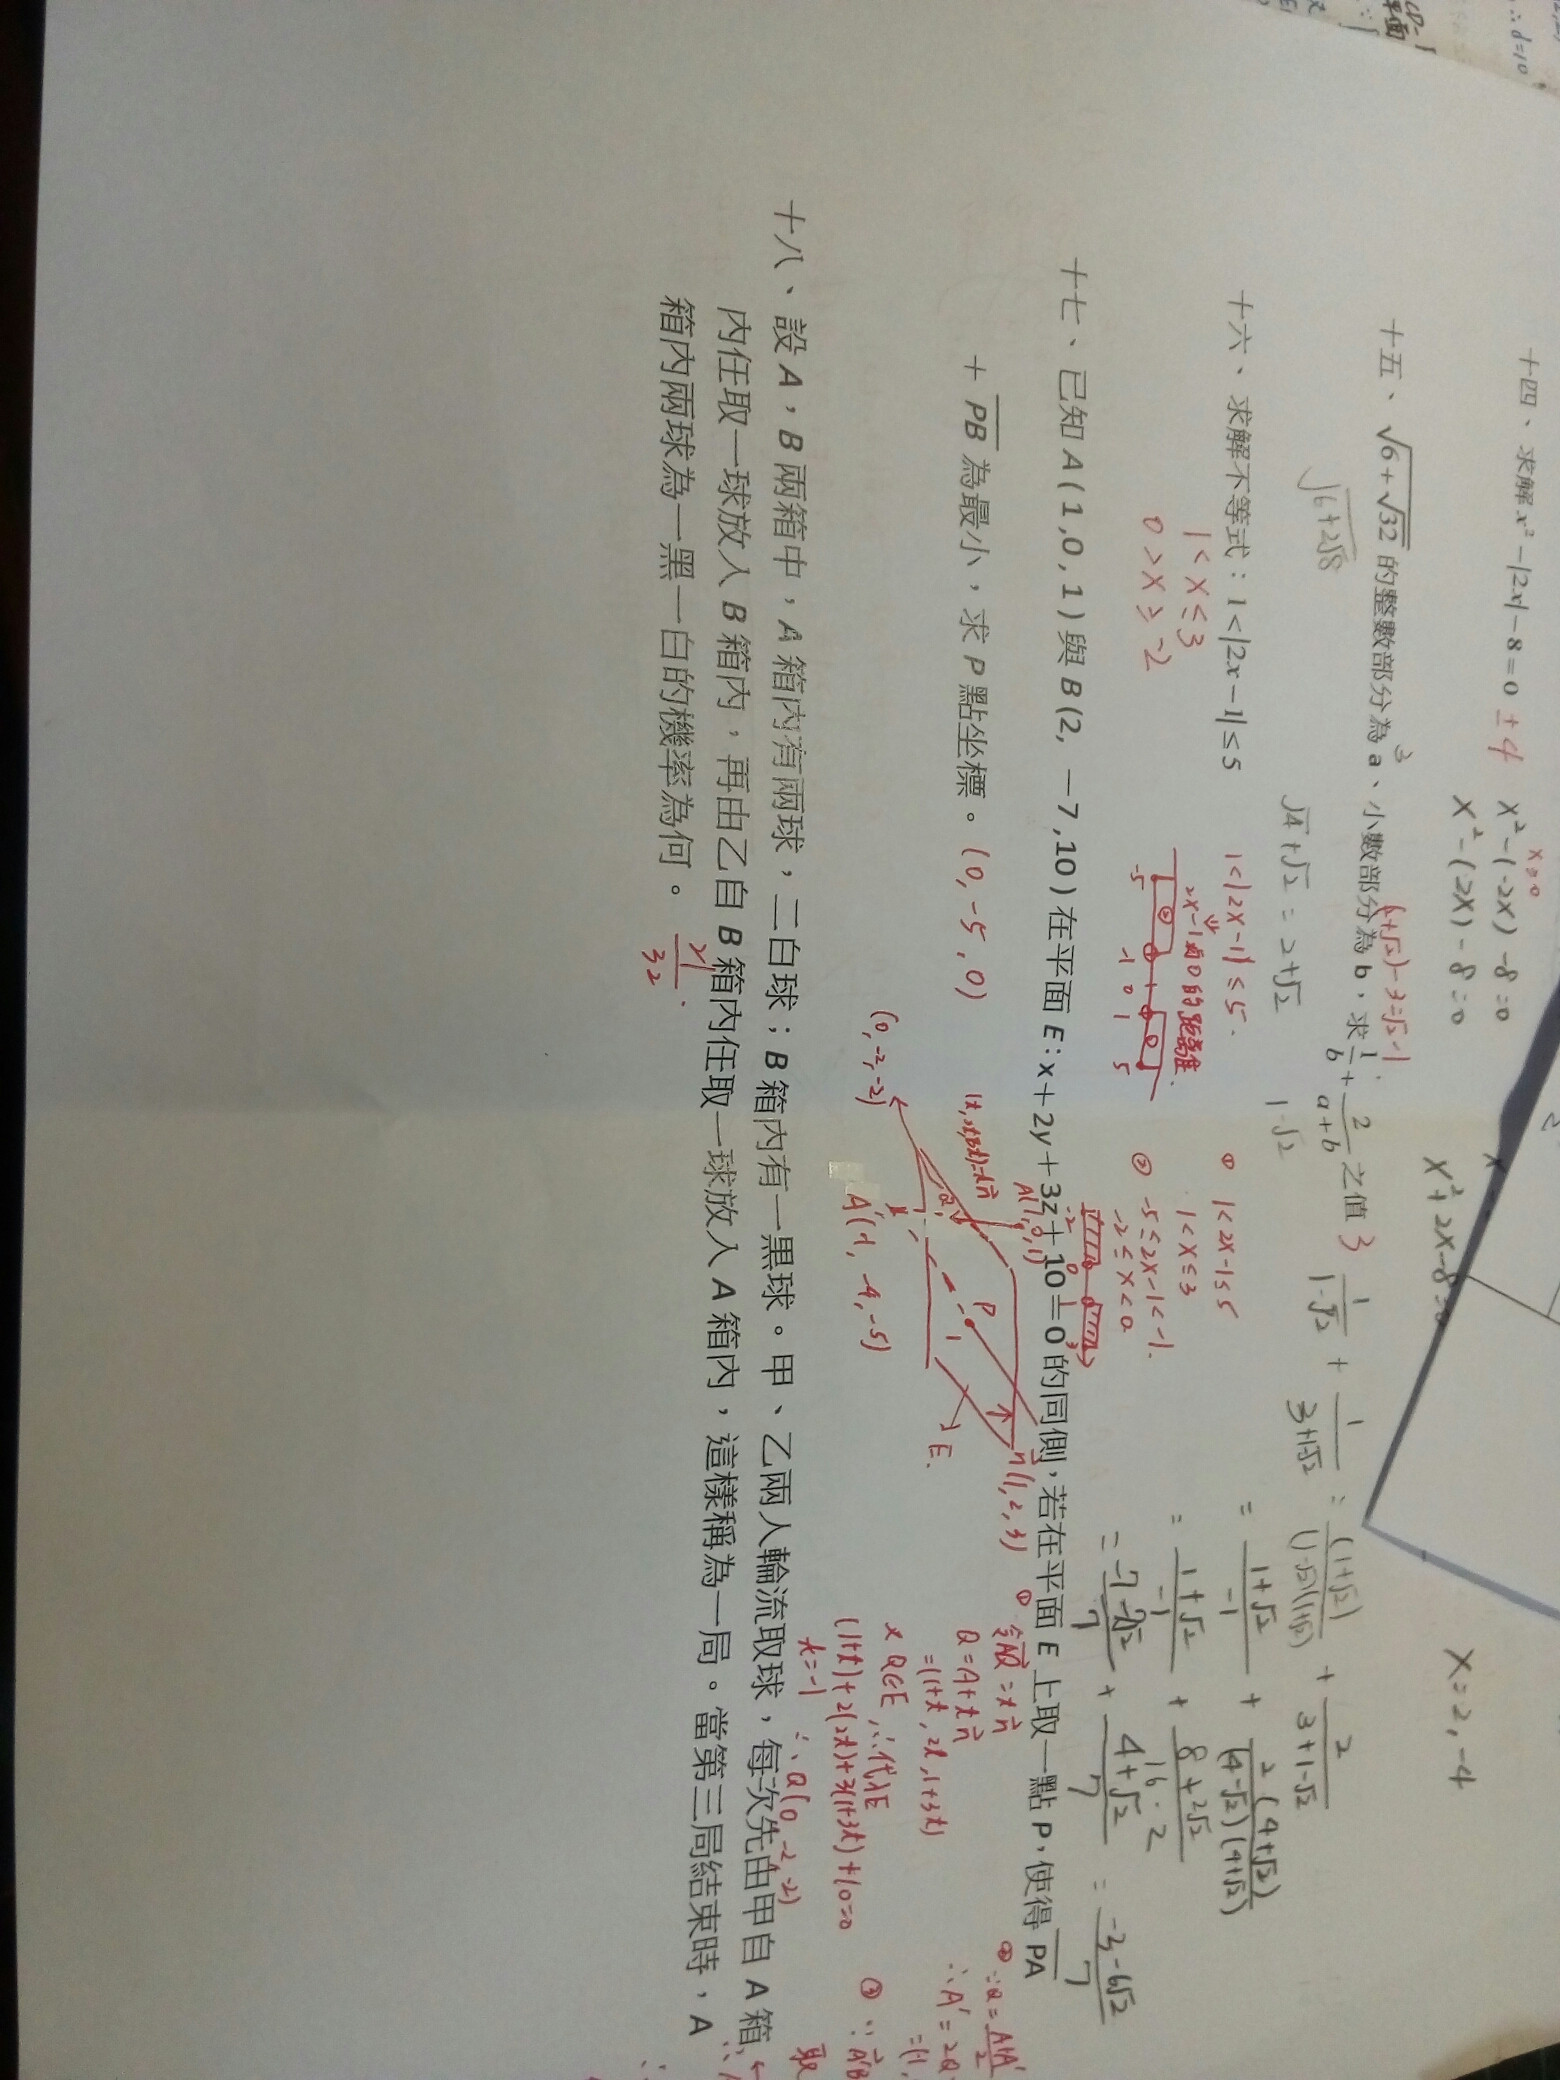 十四、求解 x² - |2x| - 8 = 0 ±4
x≥0
x² - (-2x) - 8 = 0
x² - (2x) - 8 = 0
x² + 2x - 8 = 0
x = 2, -4
十五、√(6+√32) 的整數部分為 a、小數部分為 b，求 1/b + 2/(a+b) 之值 3
3
√2) - 3 = √2 - 1
√(6+2√8)
√4 + √2 = 2 + √2
1-√2
1/(1-√2) + 1/(3+1-√2) = (1+√2)/((1-√2)(1+√2)) + 2/(3+1-√2)
= (1+√2)/-1 + 2(4+√2)/((4-√2)(4+√2))
= (1+√2)/-1 + (8+2√2)/(16-2)
= (-7-7√2)/7 + (4+√2)/7 = (-3-6√2)/7
十六、求解不等式：1 < |2x - 1| ≤ 5
1 < x ≤ 3
0 > x ≥ -2
1 < |2x-1| ≤ 5
2x-1與0的距離
-5 -1 0 1 5
① 1 < 2x-1 ≤ 5
1 < x ≤ 3
② -5 ≤ 2x-1 < -1
-2 ≤ x < 0
-2 0 1 3
十七、已知 A(1,0,1)與 B(2, －7,10)在平面 E：x + 2y + 3z + 10 = 0 的同側，若在平面 E 上取一點 P，使得 PA
+ PB 為最小，求 P 點坐標。(0, -5, 0)
A(1,0,1)
(t, 2t, 3t) = tn
n(1, 2, 3)
P
E
Q
(0, -2, -2)
A'(-1, -4, -5)
① 令AQ = tn
Q = A + tn
= (1+t, 2t, 1+3t)
又Q∈E, ∴代入E
(1+t)+2(2t)+3(1+3t)+10=0
t = -1 ∴Q(0, -2, -2)
② ∵Q = (A+A')/2
∴A' = 2Q
= (-1,
③ ∵A'B
取
十八、設 A，B 兩箱中，A 箱內有兩球，二白球；B 箱內有一黑球。甲、乙兩人輪流取球，每次先由甲自 A 箱
內任取一球放入 B 箱內，再由乙自 B 箱內任取一球放入 A 箱內，這樣稱為一局。當第三局結束時，A
箱內兩球為一黑一白的機率為何。 21/32
∴d=10
平面